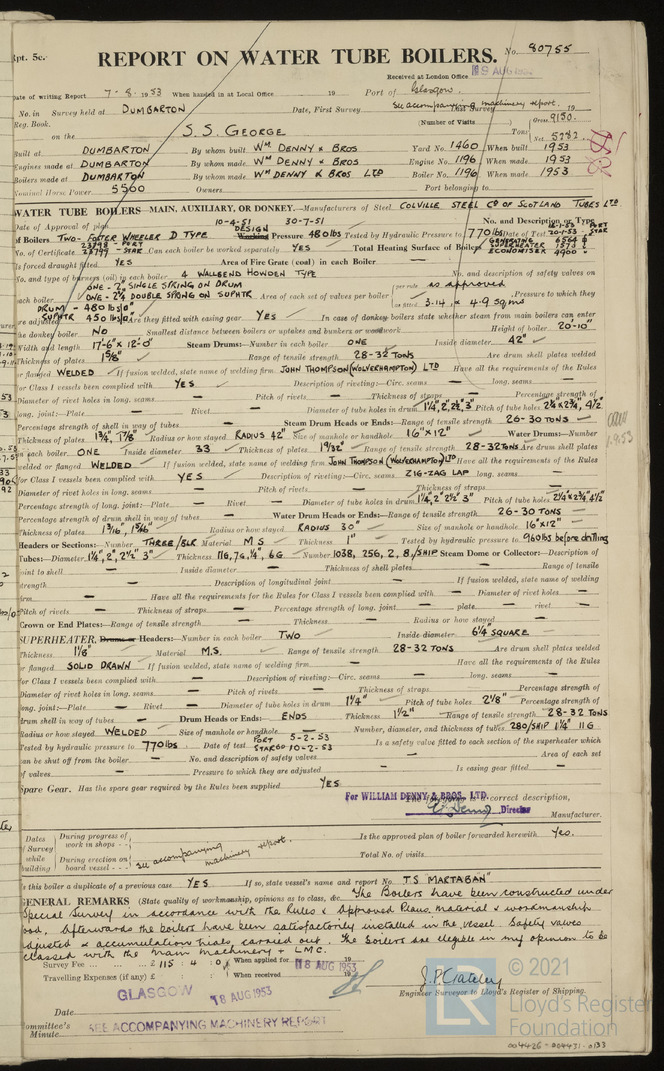 Rpt. 5c.
REPORT ON WATER TUBE BOILERS. No. 80755
Received at London Office 19 AUG 1953
Date of writing Report 7-8-1953 When handed in at Local Office 19 Port of Glasgow.
No. in Survey held at DUMBARTON Date, First Survey see accompanying machinery report. 19
Reg. Book. (Number of Visits) Gross 9130.
on the S.S. GEORGE Tons Net 5282
Built at DUMBARTON By whom built Wm DENNY & BROS Yard No. 1460 When built 1953
Engines made at DUMBARTON By whom made Wm DENNY & BROS Engine No. 1196 When made 1953
Boilers made at DUMBARTON By whom made Wm DENNY & BROS LTD Boiler No. 1196 When made 1953
Nominal Horse Power 5500 Owners Port belonging to
WATER TUBE BOILERS—MAIN, AUXILIARY, OR DONKEY.—Manufacturers of Steel COLVILLE STEEL Co OF SCOTLAND TUBES LTD.
Date of Approval of plan 10-4-51 30-7-51 No. and Description or Type
of Boilers TWO- FOSTER WHEELER D TYPE DESIGN Working Pressure 480 lbs Tested by Hydraulic Pressure to 770 lbs Date of Test 20-1-53 STAR
No. of Certificate 23798 - PORT 23799 - STAR Can each boiler be worked separately YES Total Heating Surface of Boilers GENERATING 6564 SUPERHEATER 1573 ECONOMISER 4900
Is forced draught fitted YES Area of Fire Grate (coal) in each Boiler —
No. and type of burners (oil) in each boiler 4 WALLSEND HOWDEN TYPE No. and description of safety valves on
each boiler ONE - 2" SINGLE SPRING ON DRUM ONE - 2¼ DOUBLE SPRING ON SUPHTR Area of each set of valves per boiler per rule as approved as fitted 3.14. & 4.9 sq ins Pressure to which they
are adjusted DRUM - 480 lb/□" SUPHTR 450 lbs/□" Are they fitted with easing gear YES In case of donkey boilers state whether steam from main boilers can enter
the donkey boiler NO Smallest distance between boilers or uptakes and bunkers or woodwork Height of boiler 20-10"
Width and length 17'-6" x 12'-0" Steam Drums:—Number in each boiler ONE Inside diameter 42"
Thickness of plates 1 5/16" Range of tensile strength 28-32 TONS Are drum shell plates welded
or flanged WELDED If fusion welded, state name of welding firm JOHN THOMPSON (WOLVERHAMPTON) LTD Have all the requirements of the Rules
for Class I vessels been complied with YES Description of riveting:—Circ. seams — long. seams —
Diameter of rivet holes in long. seams — Pitch of rivets — Thickness of straps — Percentage strength of
long. joint:—Plate — Rivet — Diameter of tube holes in drum 1¼", 2", 2½", 3" Pitch of tube holes 2¼ x 2¾, 4½"
Percentage strength of shell in way of tubes — Steam Drum Heads or Ends:—Range of tensile strength 26-30 TONS
Thickness of plates 1¾, 1⅞ Radius or how stayed RADIUS 42" Size of manhole or handhole 16" x 12" Water Drums:—Number
in each boiler ONE Inside diameter 33 Thickness of plates 1 9/32" Range of tensile strength 28-32 TONS Are drum shell plates
welded or flanged WELDED If fusion welded, state name of welding firm JOHN THOMPSON (WOLVERHAMPTON) LTD Have all the requirements of the Rules
for Class I vessels been complied with YES Description of riveting:—Circ. seams ZIG-ZAG LAP long. seams —
Diameter of rivet holes in long. seams — Pitch of rivets — Thickness of straps —
Percentage strength of long. joint:—Plate — Rivet — Diameter of tube holes in drum 1¼, 2" 2½" 3" Pitch of tube holes 2¼" x 2¾ 4½"
Percentage strength of drum shell in way of tubes — Water Drum Heads or Ends:—Range of tensile strength 26-30 TONS
Thickness of plates 1 3/16, 1 5/16" Radius or how stayed RADIUS 30" Size of manhole or handhole 16" x 12"
Headers or Sections:—Number THREE/BLR Material M S Thickness 1" Tested by hydraulic pressure to 960 lbs before drilling
Tubes:—Diameter 1¼, 2", 2½" 3" Thickness 11G, 7G, ¼, 6G Number 1038, 256, 2, 8, /SHIP Steam Dome or Collector:—Description of
joint to shell — Inside diameter — Thickness of shell plates — Range of tensile
strength — Description of longitudinal joint — If fusion welded, state name of welding
firm — Have all the requirements for the Rules for Class I vessels been complied with — Diameter of rivet holes —
Pitch of rivets — Thickness of straps — Percentage strength of long. joint — plate — rivet —
Crown or End Plates:—Range of tensile strength — Thickness — Radius or how stayed —
SUPERHEATER. Drums or Headers:—Number in each boiler TWO Inside diameter 6¼ SQUARE
Thickness 1⅛" Material M.S. Range of tensile strength 28-32 TONS Are drum shell plates welded
or flanged SOLID DRAWN If fusion welded, state name of welding firm — Have all the requirements of the Rules
for Class I vessels been complied with — Description of riveting:—Circ. seams — long. seams —
Diameter of rivet holes in long. seams — Pitch of rivets — Thickness of straps — Percentage strength of
long. joint:—Plate — Rivet — Diameter of tube holes in drum 1¼" Pitch of tube holes 2⅛" Percentage strength of
drum shell in way of tubes — Drum Heads or Ends:— ENDS Thickness 1½" Range of tensile strength 28-32 TONS
Radius or how stayed WELDED Size of manhole or handhole — Number, diameter, and thickness of tubes 280/SHIP 1¼" 11G
Tested by hydraulic pressure to 770 lbs Date of test PORT 5-2-53 STARBD 10-2-53 Is a safety valve fitted to each section of the superheater which
can be shut off from the boiler — No. and description of safety valves — Area of each set
of valves — Pressure to which they are adjusted — Is easing gear fitted —
Spare Gear. Has the spare gear required by the Rules been supplied YES
For WILLIAM DENNY & BROS. LTD. The foregoing is a correct description,
Director Manufacturer.
Dates of Survey while building
During progress of work in shops - - Is the approved plan of boiler forwarded herewith Yes.
During erection on board vessel - - - see accompanying machinery report. Total No. of visits
Is this boiler a duplicate of a previous case YES If so, state vessel's name and report No. T.S MARTABAN"
GENERAL REMARKS (State quality of workmanship, opinions as to class, &c. The Boilers have been constructed under
Special Survey in accordance with the Rules & Approved Plans. material & workmanship
good. Afterwards the boilers have been satisfactorily installed in the vessel. Safety valves
adjusted & accumulation trials carried out. The boilers are eligible in my opinion to be
classed with the main machinery + LMC.
Survey Fee ... £ 115 : 4 : 0 When applied for 18 AUG 1953
Travelling Expenses (if any) £ : : When received 19
Engineer Surveyor to Lloyd's Register of Shipping.
GLASGOW 18 AUG 1953
Date
Committee's Minute SEE ACCOMPANYING MACHINERY REPORT
© 2021
Lloyd's Register
Foundation
004426-004431-0133